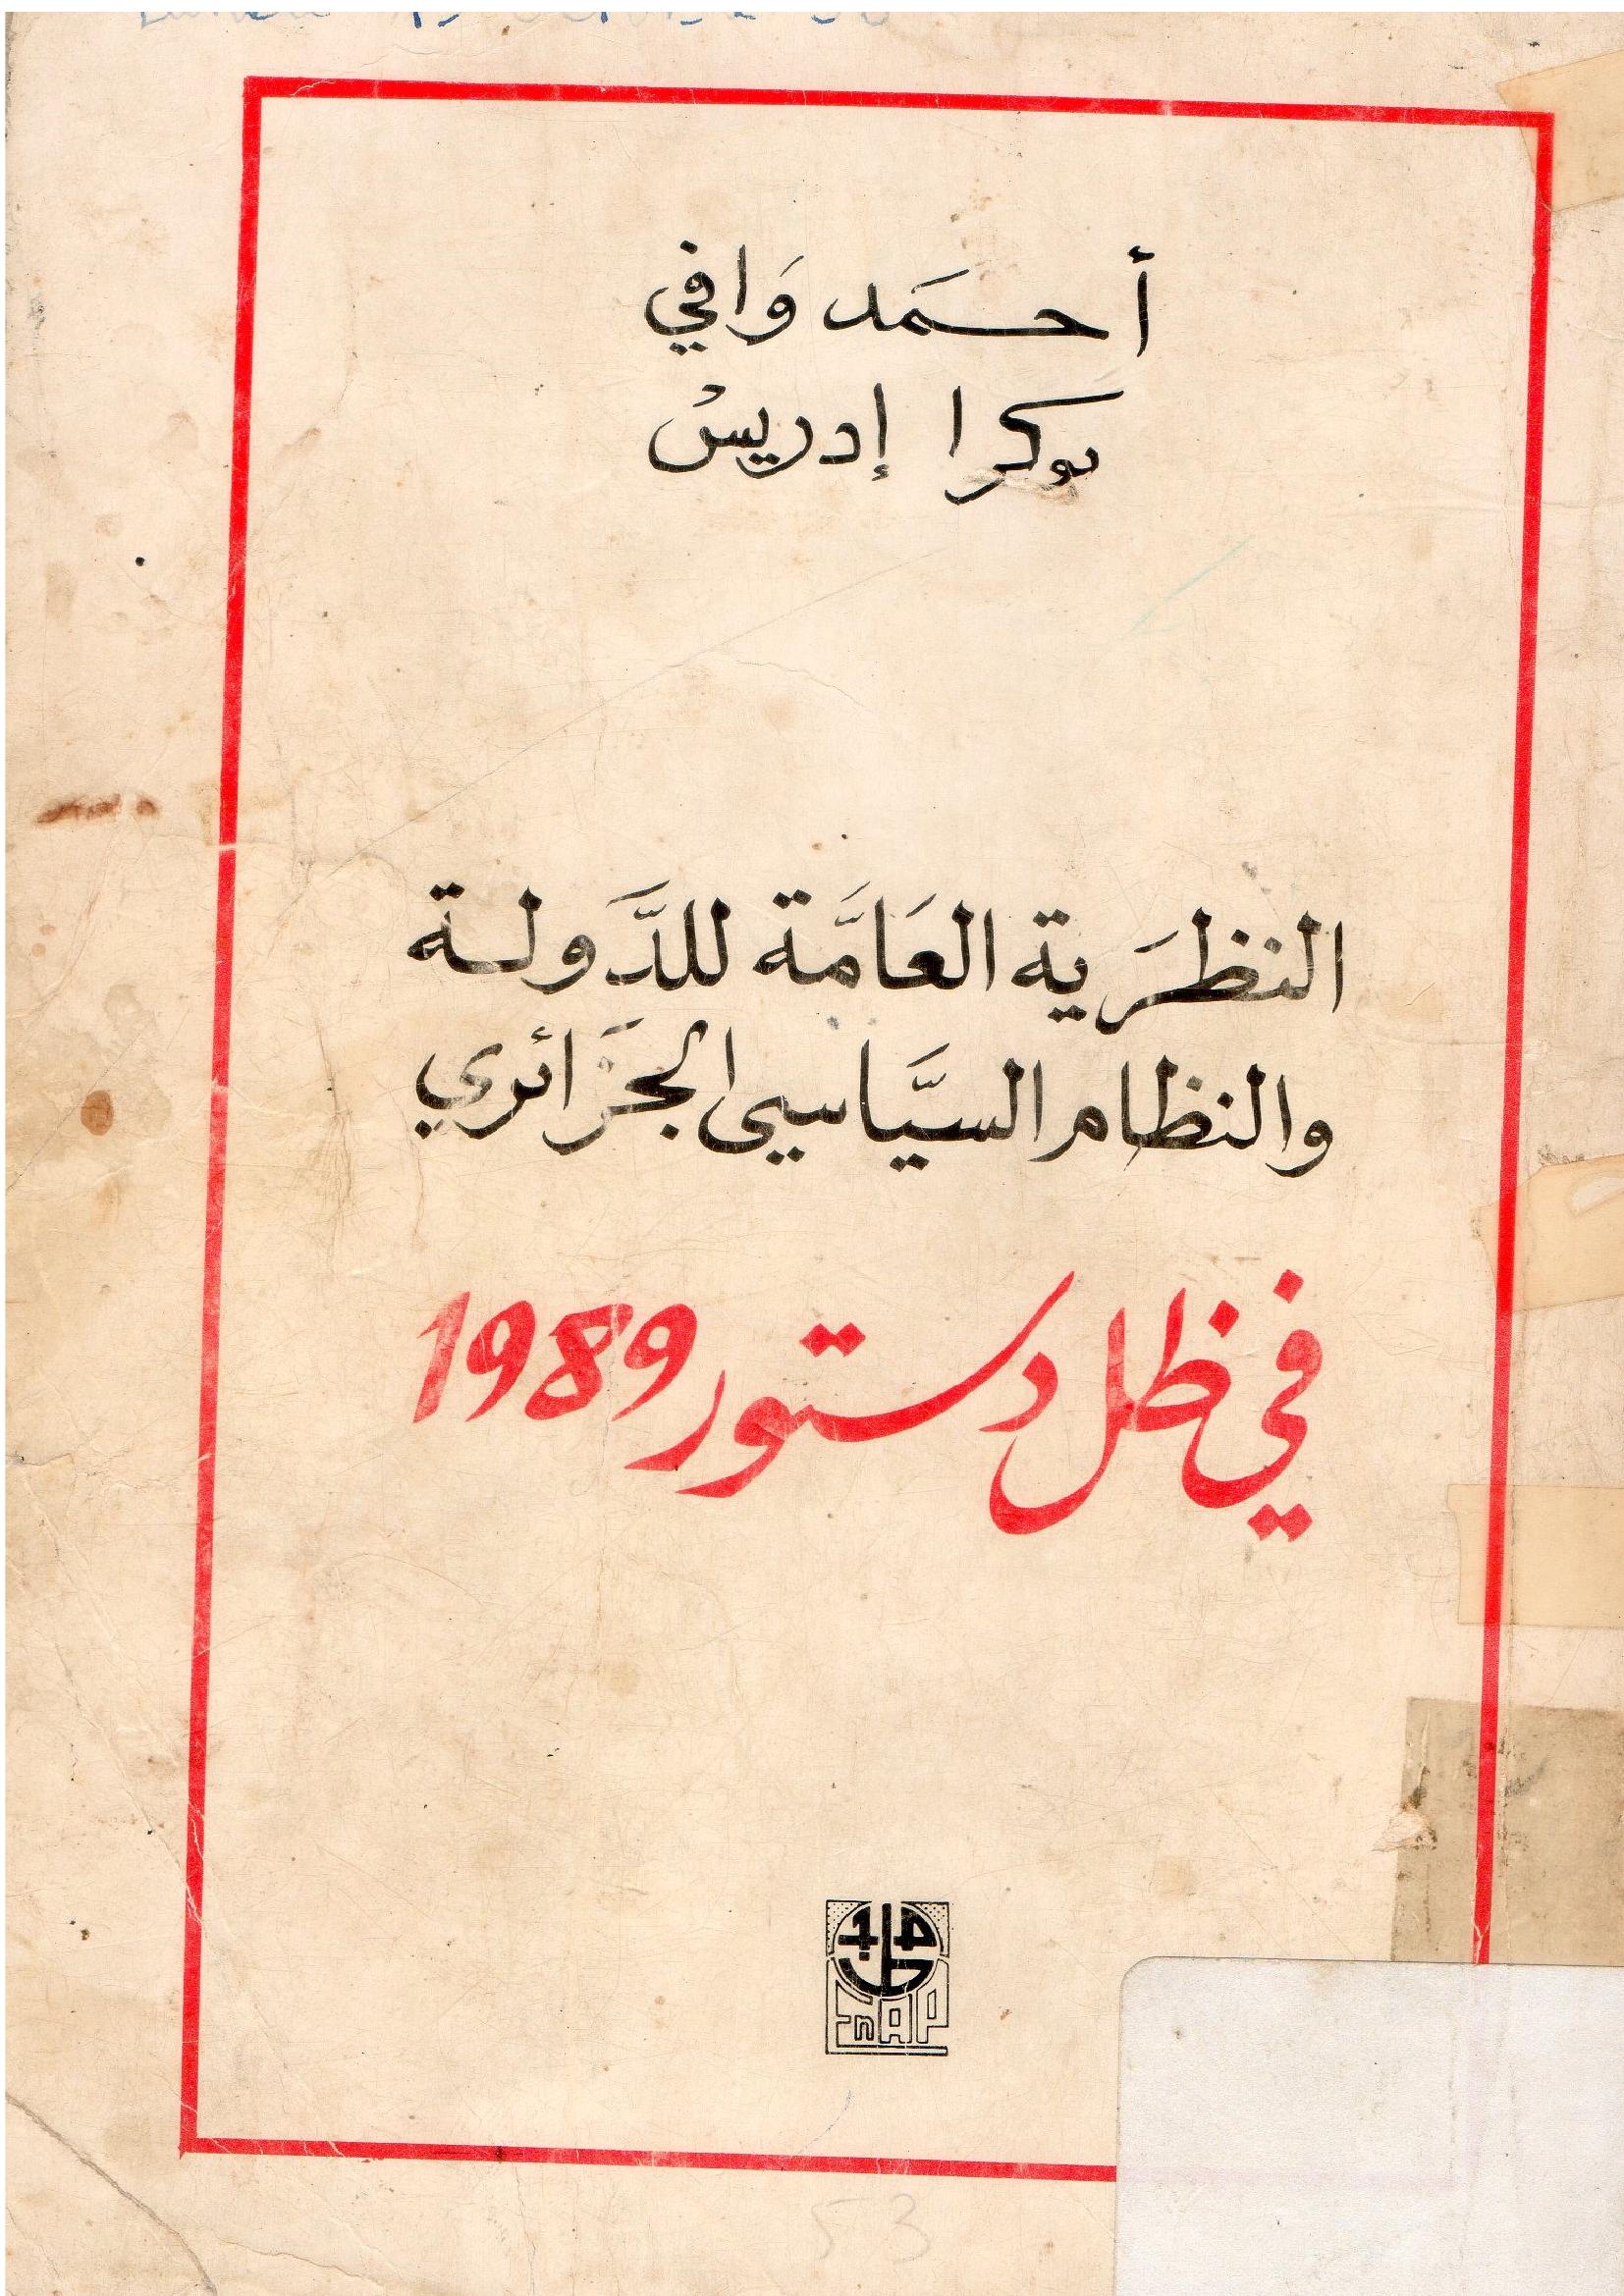 أحمَد وَافي
بوكرا إدريسْ
النظرَية العَامَّة للدَّولة
والنظام السيَّاسي الجزَائري
في ظل دستور 1989
ENAP
53